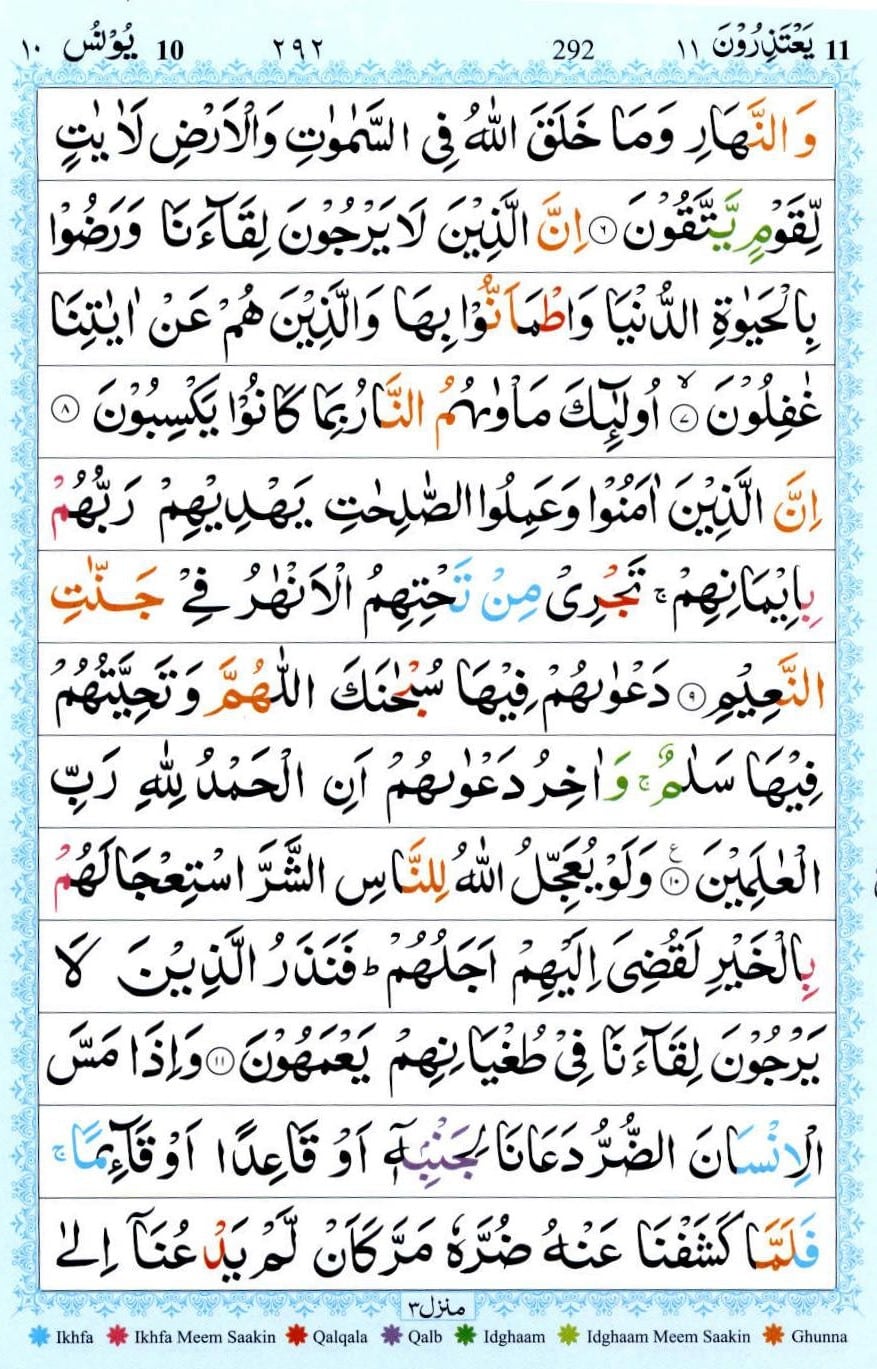 11 يَعْتَذِرُوْنَ ١١ 292 ٢٩٢ 10 يُوْنُس ١٠
وَالنَّهَارِ وَمَا خَلَقَ اللّٰهُ فِى السَّمٰوٰتِ وَالْاَرْضِ لَاٰيٰتٍ
لِّقَوْمٍ يَّتَّقُوْنَ ۝٦ اِنَّ الَّذِيْنَ لَا يَرْجُوْنَ لِقَآءَنَا وَرَضُوْا
بِالْحَيٰوةِ الدُّنْيَا وَاطْمَاَنُّوْا بِهَا وَالَّذِيْنَ هُمْ عَنْ اٰيٰتِنَا
غٰفِلُوْنَ ۝٧ۙ اُولٰٓئِكَ مَاْوٰىهُمُ النَّارُ بِمَا كَانُوْا يَكْسِبُوْنَ ۝٨
اِنَّ الَّذِيْنَ اٰمَنُوْا وَعَمِلُوا الصّٰلِحٰتِ يَهْدِيْهِمْ رَبُّهُمْ
بِاِيْمَانِهِمْ ۚ تَجْرِىْ مِنْ تَحْتِهِمُ الْاَنْهٰرُ فِىْ جَنّٰتِ
النَّعِيْمِ ۝٩ دَعْوٰىهُمْ فِيْهَا سُبْحٰنَكَ اللّٰهُمَّ وَتَحِيَّتُهُمْ
فِيْهَا سَلٰمٌ ۚ وَاٰخِرُ دَعْوٰىهُمْ اَنِ الْحَمْدُ لِلّٰهِ رَبِّ
الْعٰلَمِيْنَ ۝١٠ ع وَلَوْ يُعَجِّلُ اللّٰهُ لِلنَّاسِ الشَّرَّ اسْتِعْجَالَهُمْ
بِالْخَيْرِ لَقُضِىَ اِلَيْهِمْ اَجَلُهُمْ ؕ فَنَذَرُ الَّذِيْنَ لَا
يَرْجُوْنَ لِقَآءَنَا فِىْ طُغْيَانِهِمْ يَعْمَهُوْنَ ۝١١ وَاِذَا مَسَّ
الْاِنْسَانَ الضُّرُّ دَعَانَا لِجَنْۢبِهٖۤ اَوْ قَاعِدًا اَوْ قَآئِمًا ۚ
فَلَمَّا كَشَفْنَا عَنْهُ ضُرَّهٗ مَرَّ كَاَنْ لَّمْ يَدْعُنَاۤ اِلٰى
منزل٣
Ikhfa Ikhfa Meem Saakin Qalqala Qalb Idghaam Idghaam Meem Saakin Ghunna